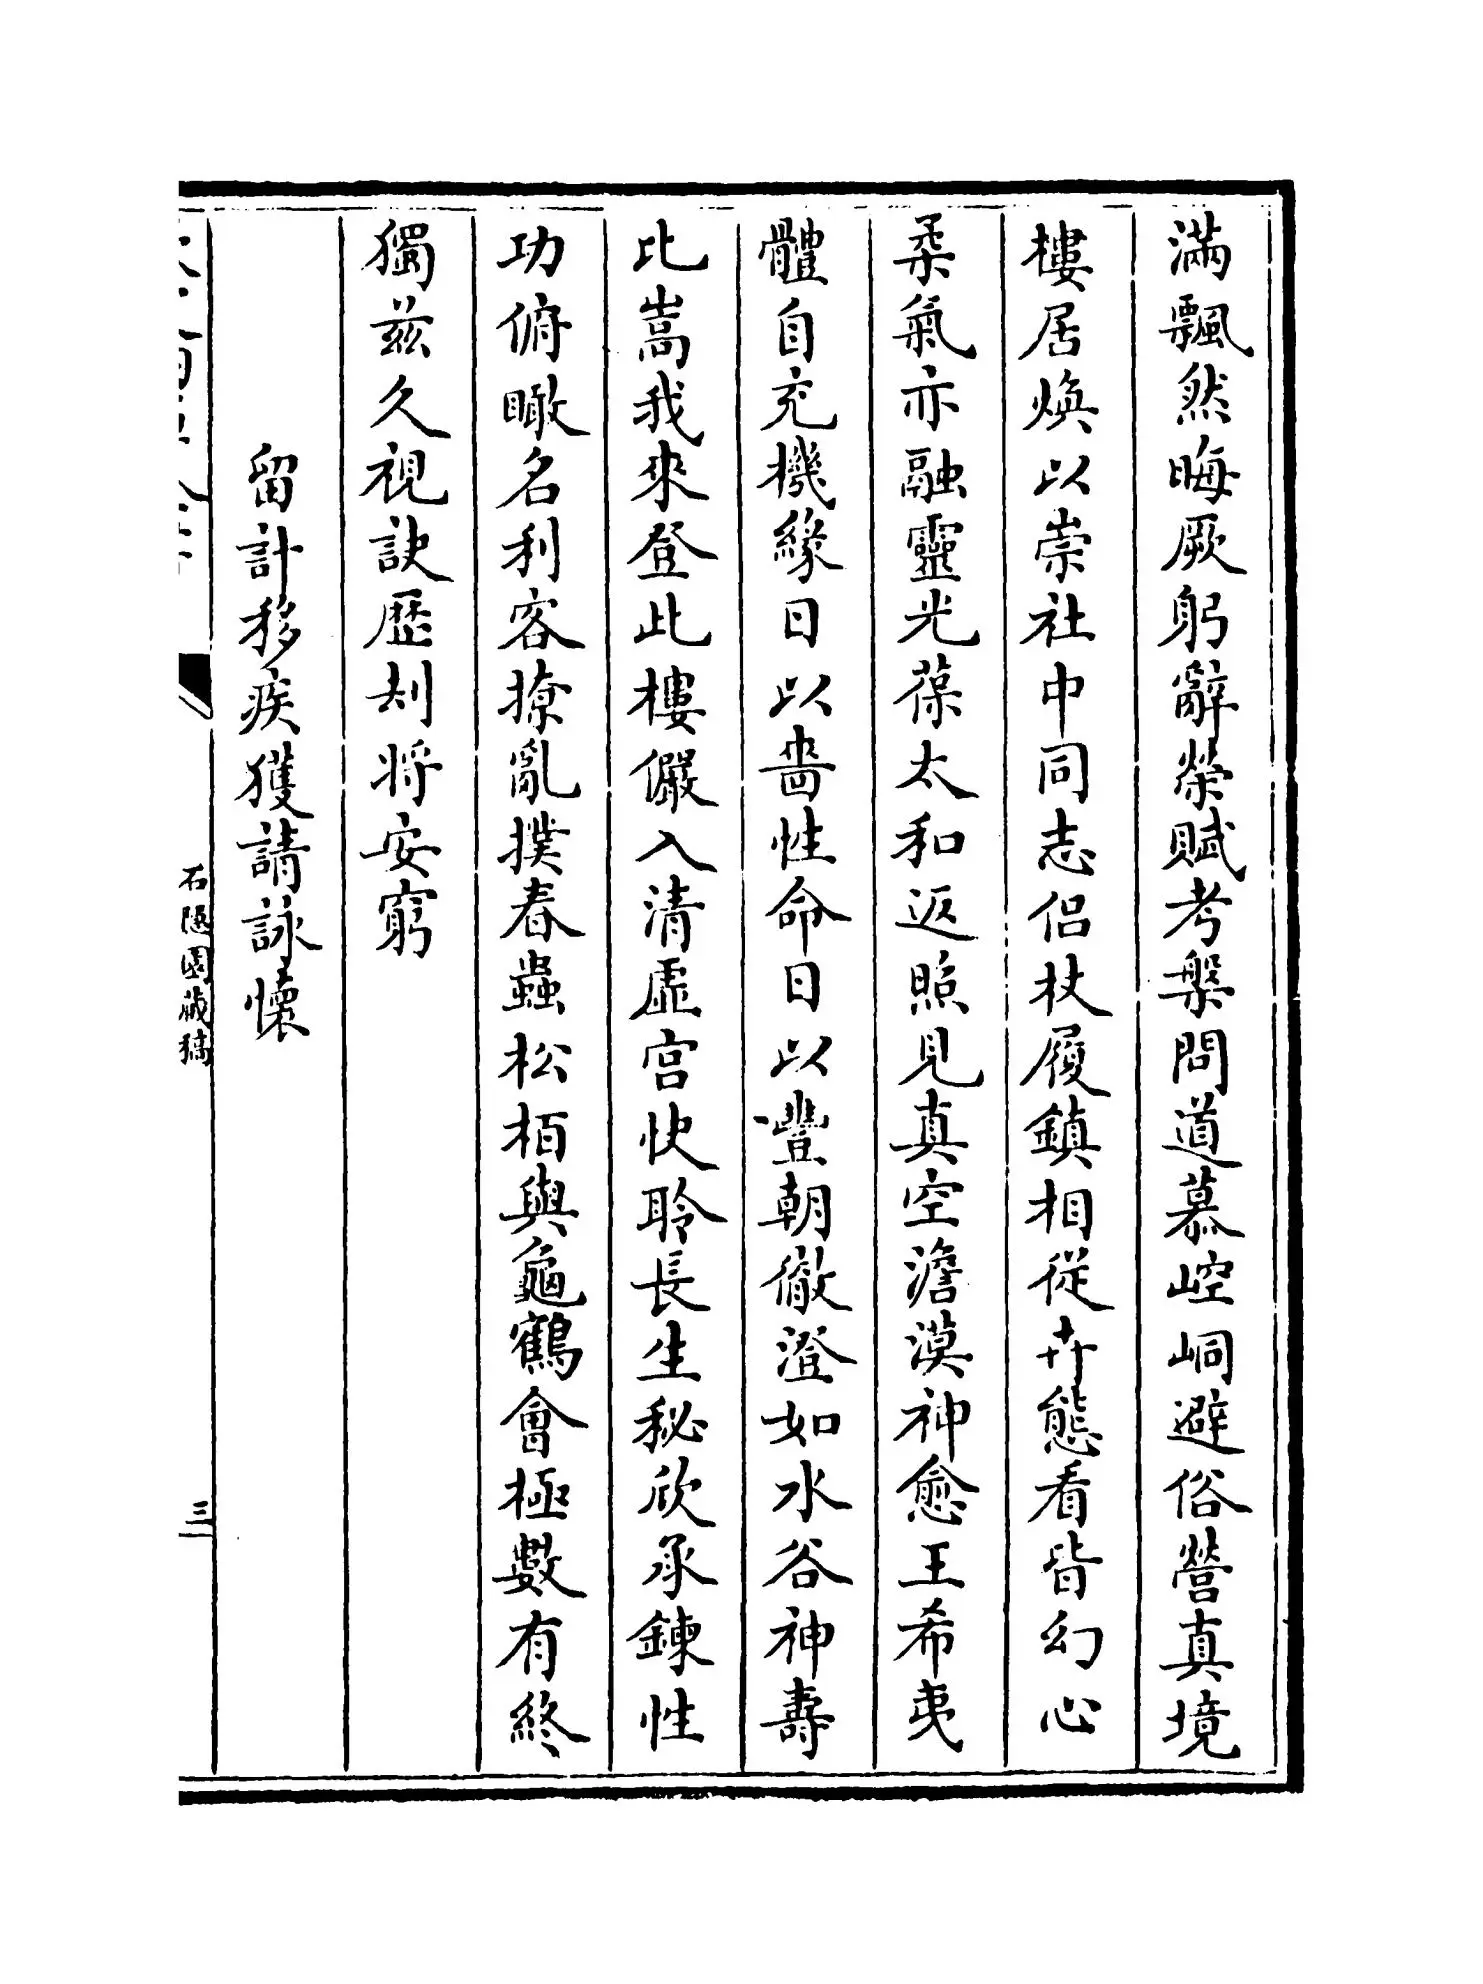 滿飄然晦厥躬辭榮賦考槃問道慕崆峒避俗營真境
樓居煥以崇社中同志侶杖履鎮相從卉態看皆幻心
柔氣亦融靈光葆太和返照見真空澹漠神愈王希夷
體自充機緣日以嗇性命日以豐朝徹澄如水谷神壽
比嵩我來登此樓儼入清虛宮快聆長生秘欣承鍊性
功俯瞰名利客撩亂撲春蟲松栢與龜鶴會極數有終
獨茲久視訣歷刼將安窮
留計移疾獲請詠懷
石隱園藏稿
三